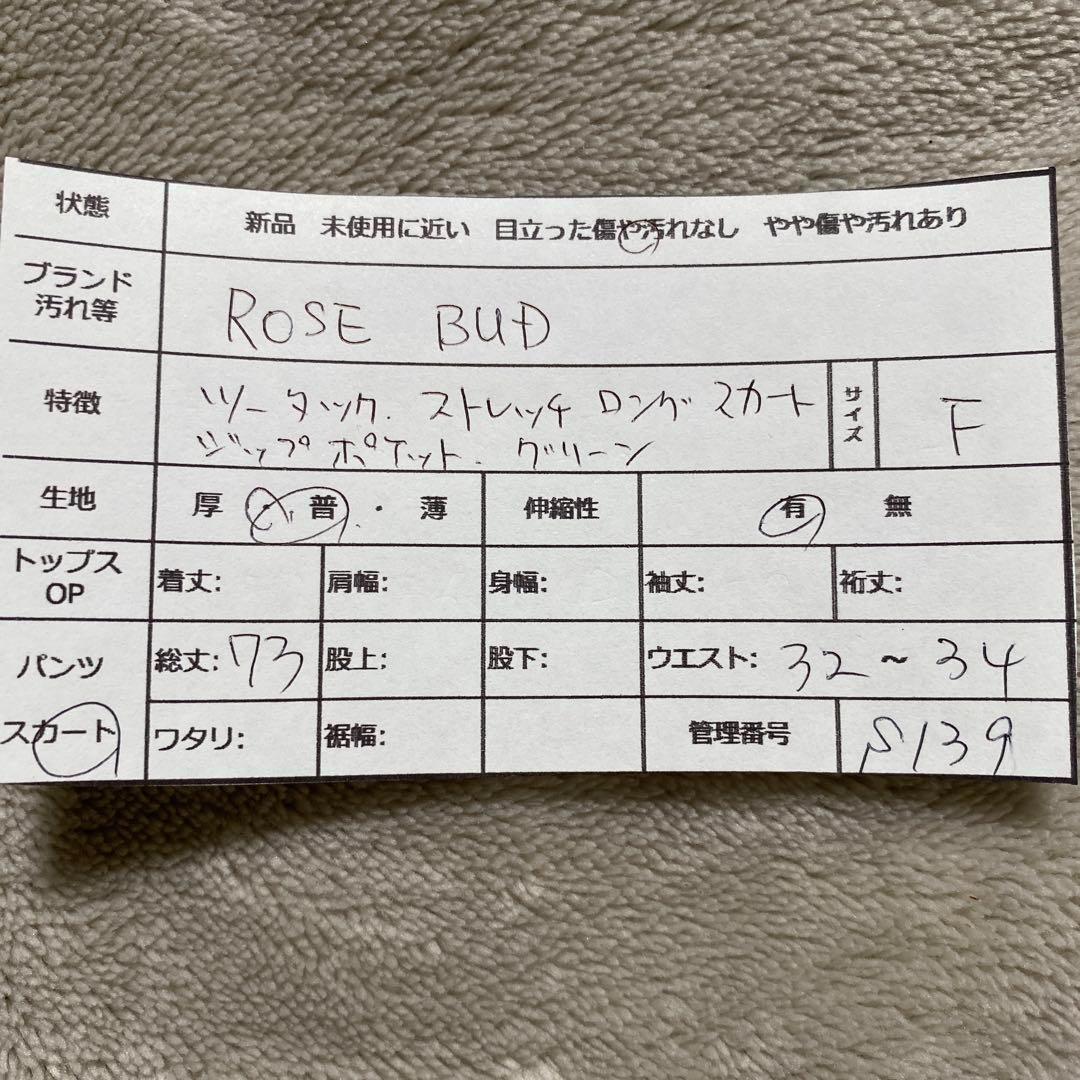 状態 新品 未使用に近い 目立った傷や汚れなし やや傷や汚れあり
ブランド
汚れ等
ROSE BUD
特徴
ツータック. ストレッチ ロング スカート
ジップポケット. グリーン
サイズ
F
生地 厚 ・ 普 ・ 薄 伸縮性 有 無
トップス
OP
着丈: 肩幅: 身幅: 袖丈: 裄丈:
パンツ
スカート
総丈: 73 股上: 股下: ウエスト: 32 ~ 34
ワタリ: 裾幅: 管理番号 S139